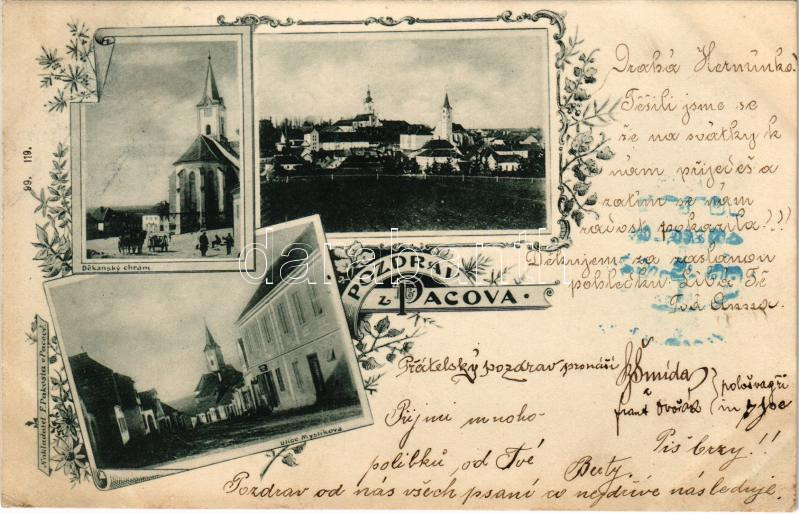 Drahá Hermínko!
Těšili jsme se
že na svátky k
nám přijedeš a
zatím se nám
radost pokazila!!!
Děkujem za zaslanou
pohledku. Líbá Tě
Tvá Anna.
99. 119.
Děkanský chrám.
POZDRAV
z PACOVA.
Ulice Myslíkova
Nakladatel F. Pakosta v Pacově.
Přátelský pozdrav pronáší
Šmída
a
frant Dvořák
položvagři
in spe
Přijmi mnoho
polibků od Tvé
Berty.
Piš brzy!!
Pozdrav od nás všech psaní co nejdříve následuje.
darabanth